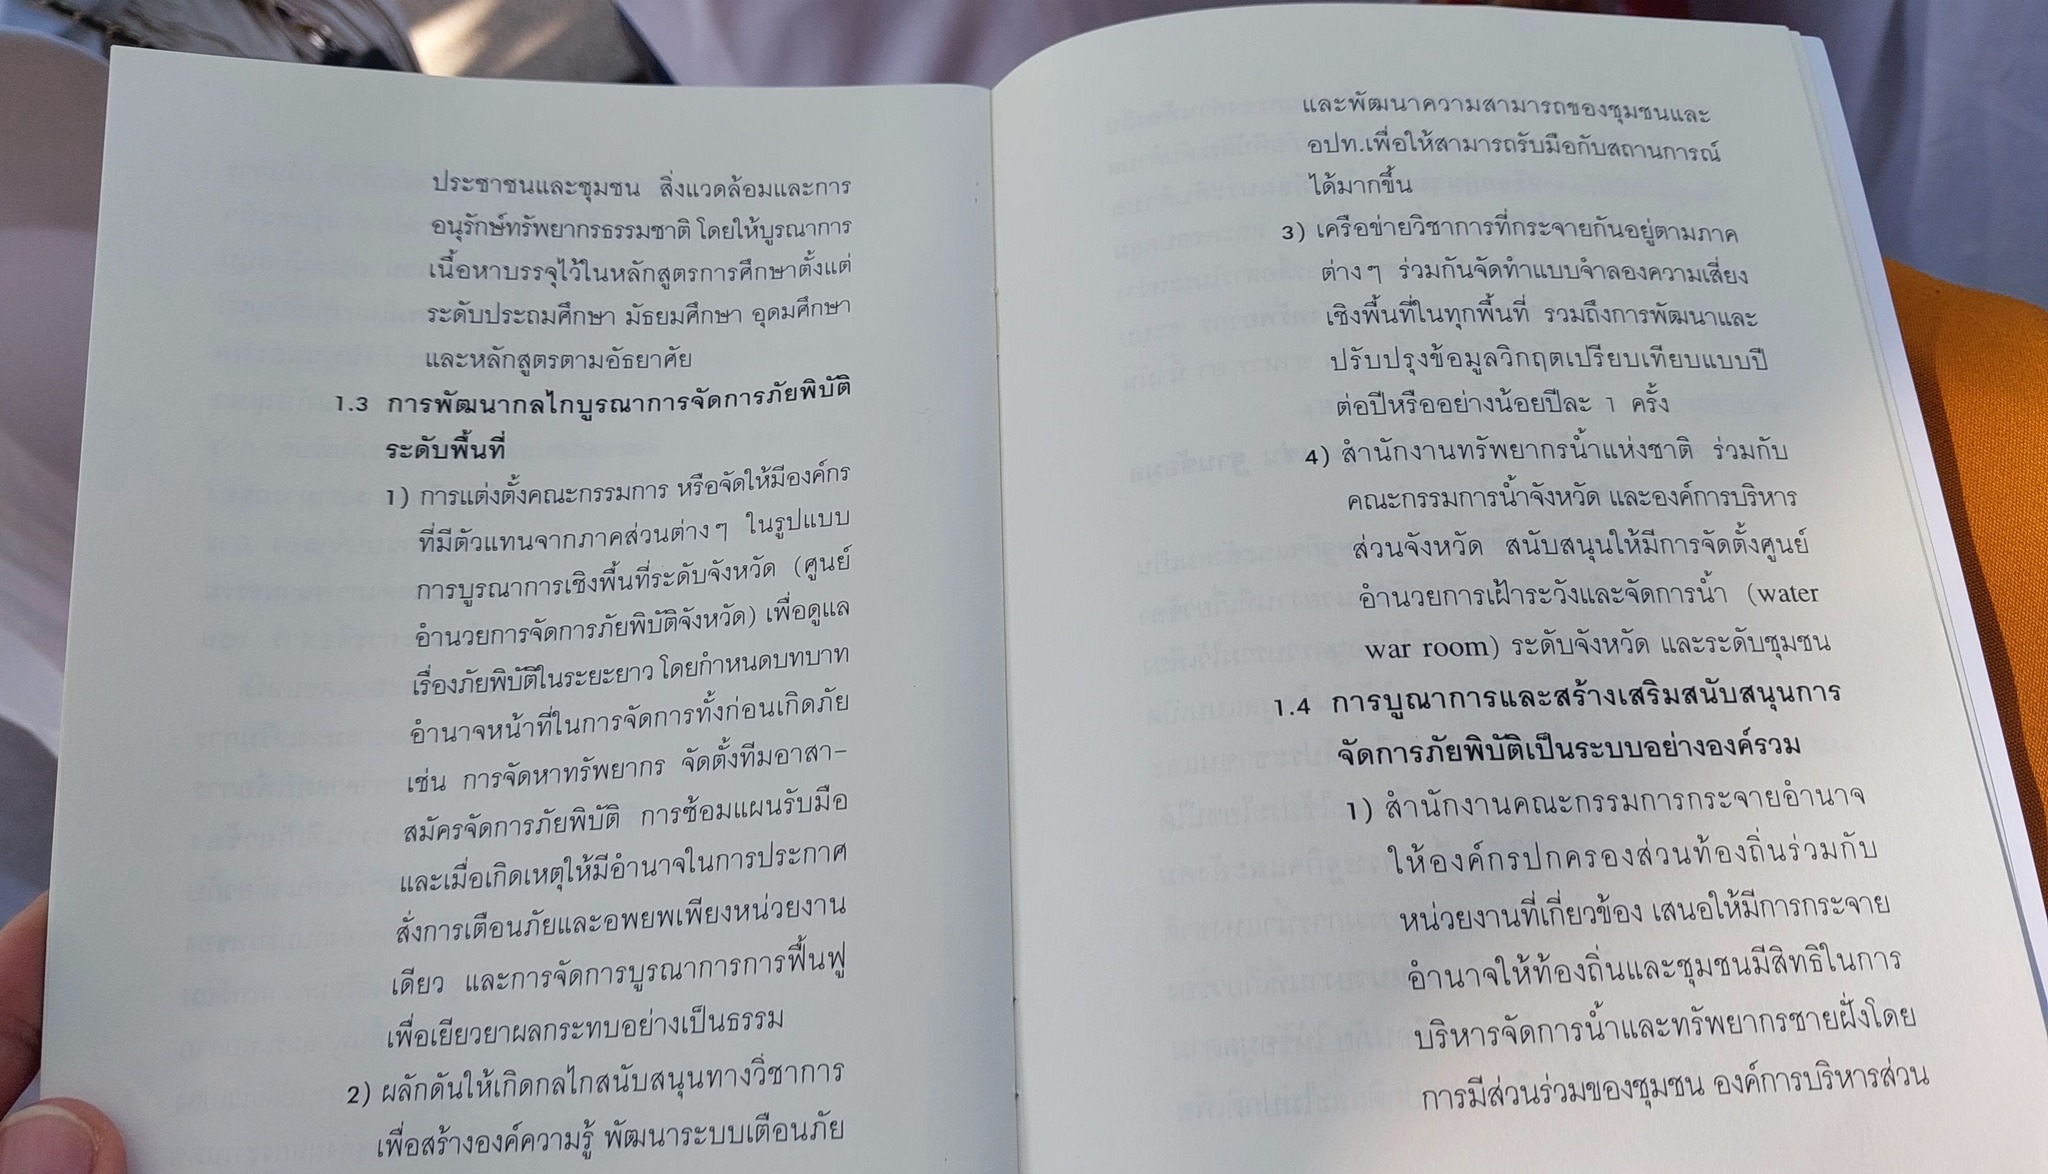 ประชาชนและชุมชน สิ่งแวดล้อมและการ
อนุรักษ์ทรัพยากรธรรมชาติ โดยให้บูรณาการ
เนื้อหาบรรจุไว้ในหลักสูตรการศึกษาตั้งแต่
ระดับประถมศึกษา มัธยมศึกษา อุดมศึกษา
และหลักสูตรตามอัธยาศัย
1.3 การพัฒนากลไกบูรณาการจัดการภัยพิบัติ
ระดับพื้นที่
1) การแต่งตั้งคณะกรรมการ หรือจัดให้มีองค์กร
ที่มีตัวแทนจากภาคส่วนต่างๆ ในรูปแบบ
การบูรณาการเชิงพื้นที่ระดับจังหวัด (ศูนย์
อำนวยการจัดการภัยพิบัติจังหวัด) เพื่อดูแล
เรื่องภัยพิบัติในระยะยาว โดยกำหนดบทบาท
อำนาจหน้าที่ในการจัดการทั้งก่อนเกิดภัย
เช่น การจัดหาทรัพยากร จัดตั้งทีมอาสา-
สมัครจัดการภัยพิบัติ การซ้อมแผนรับมือ
และเมื่อเกิดเหตุให้มีอำนาจในการประกาศ
สั่งการเตือนภัยและอพยพเพียงหน่วยงาน
เดียว และการจัดการบูรณาการการฟื้นฟู
เพื่อเยียวยาผลกระทบอย่างเป็นธรรม
2) ผลักดันให้เกิดกลไกสนับสนุนทางวิชาการ
เพื่อสร้างองค์ความรู้ พัฒนาระบบเตือนภัย
และพัฒนาความสามารถของชุมชนและ
อปท.เพื่อให้สามารถรับมือกับสถานการณ์
ได้มากขึ้น
3) เครือข่ายวิชาการที่กระจายกันอยู่ตามภาค
ต่างๆ ร่วมกันจัดทำแบบจำลองความเสี่ยง
เชิงพื้นที่ในทุกพื้นที่ รวมถึงการพัฒนาและ
ปรับปรุงข้อมูลวิกฤตเปรียบเทียบแบบปี
ต่อปีหรืออย่างน้อยปีละ 1 ครั้ง
4) สำนักงานทรัพยากรน้ำแห่งชาติ ร่วมกับ
คณะกรรมการน้ำจังหวัด และองค์การบริหาร
ส่วนจังหวัด สนับสนุนให้มีการจัดตั้งศูนย์
อำนวยการเฝ้าระวังและจัดการน้ำ (water
war room) ระดับจังหวัด และระดับชุมชน
1.4 การบูณาการและสร้างเสริมสนับสนุนการ
จัดการภัยพิบัติเป็นระบบอย่างองค์รวม
1) สำนักงานคณะกรรมการกระจายอำนาจ
ให้องค์กรปกครองส่วนท้องถิ่นร่วมกับ
หน่วยงานที่เกี่ยวข้อง เสนอให้มีการกระจาย
อำนาจให้ท้องถิ่นและชุมชนมีสิทธิในการ
บริหารจัดการน้ำและทรัพยากรชายฝั่งโดย
การมีส่วนร่วมของชุมชน องค์การบริหารส่วน